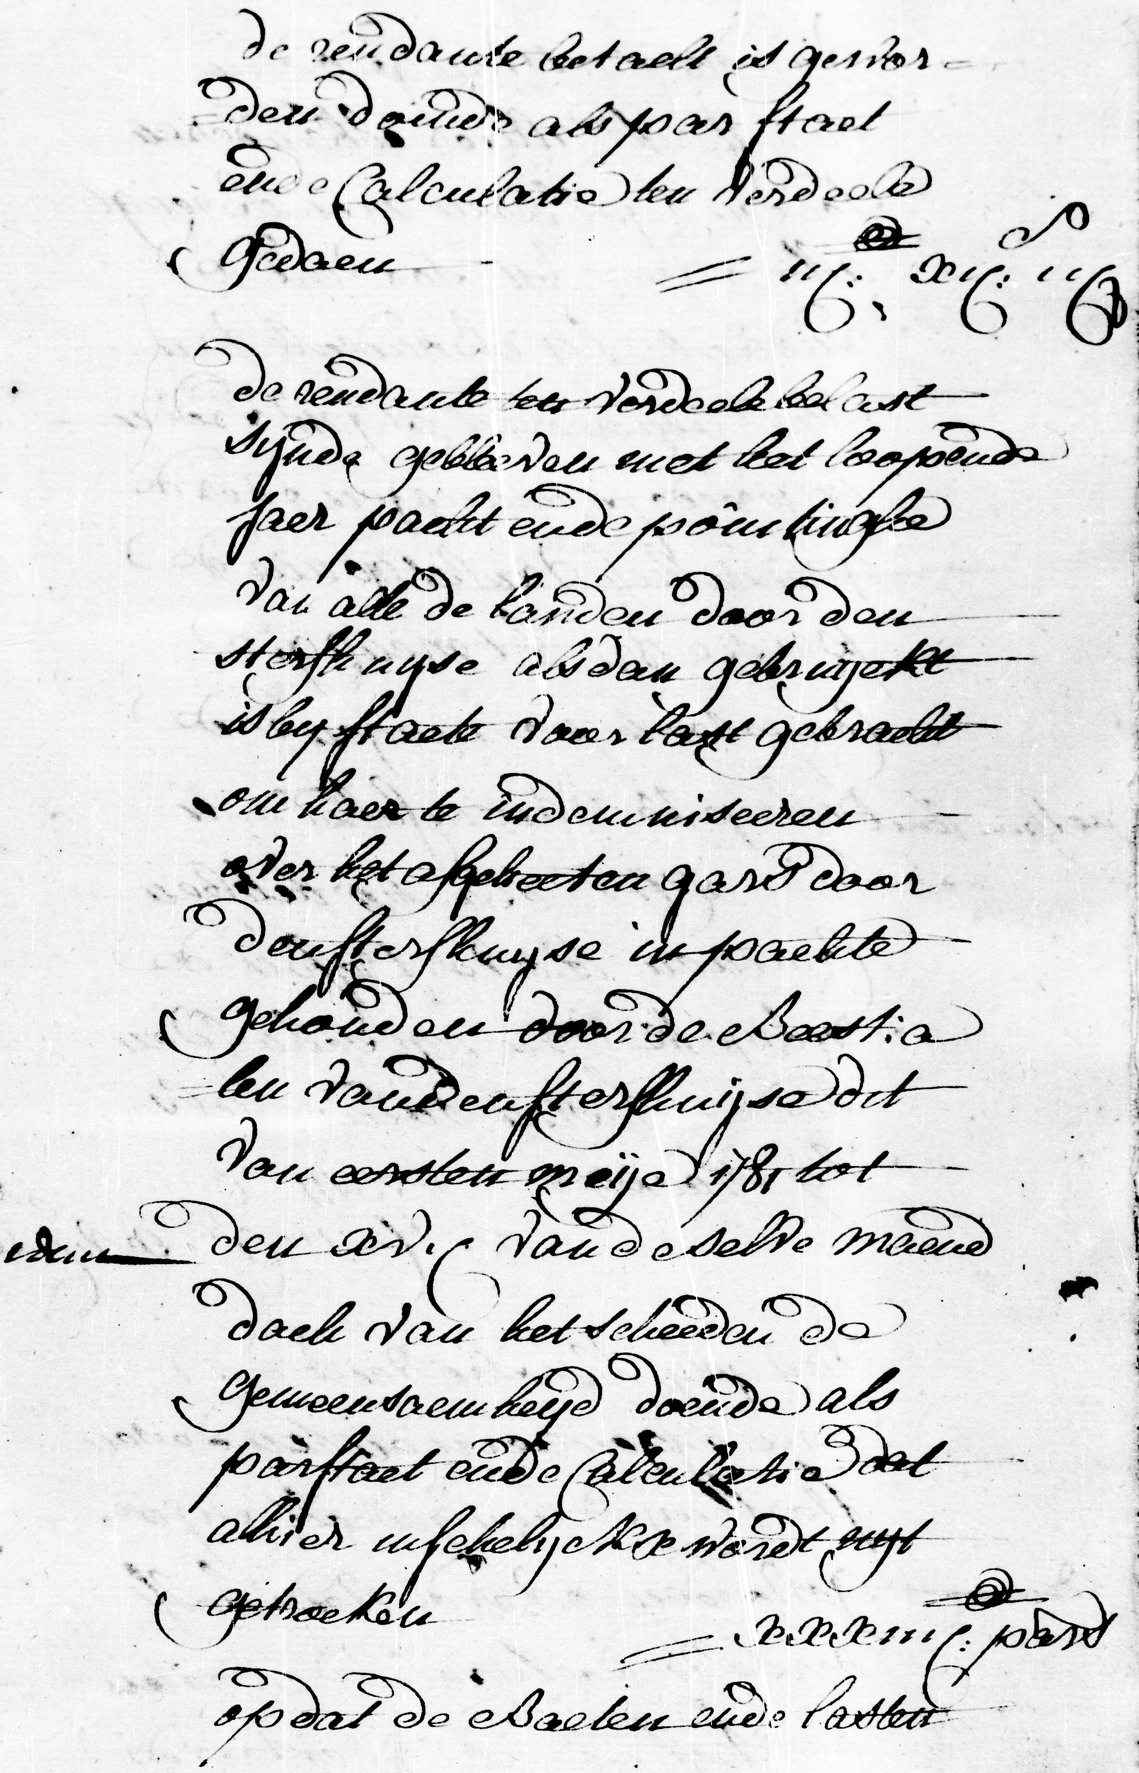 de rendante betaelt is gewor-
den doende als par staet
ende Calculatie ten verdeele
gedaen = iij: xij: iij
de rendante ten verdeele belast
synde gebleven met het loopende
jaer pacht ende pointinghe
van alle de landen door den
sterfhuyse alsdan gebruyckt
is by staete voor last gebracht
om haer te indemniseeren
over het afgebeeten gars door
den sterfhuyse in pachte
gehouden door de Beestia
len van den sterfhuijse dit
van eersten meije 1781 tot
den xv. van de selve maend
dach van het scheeden de
gemeensaemheyd doende als
par staet ende Calculatie dat
alhier inschelyckx wordt uyt
getrocken = xxxiij: pars
op dat de Baeten ende lasten